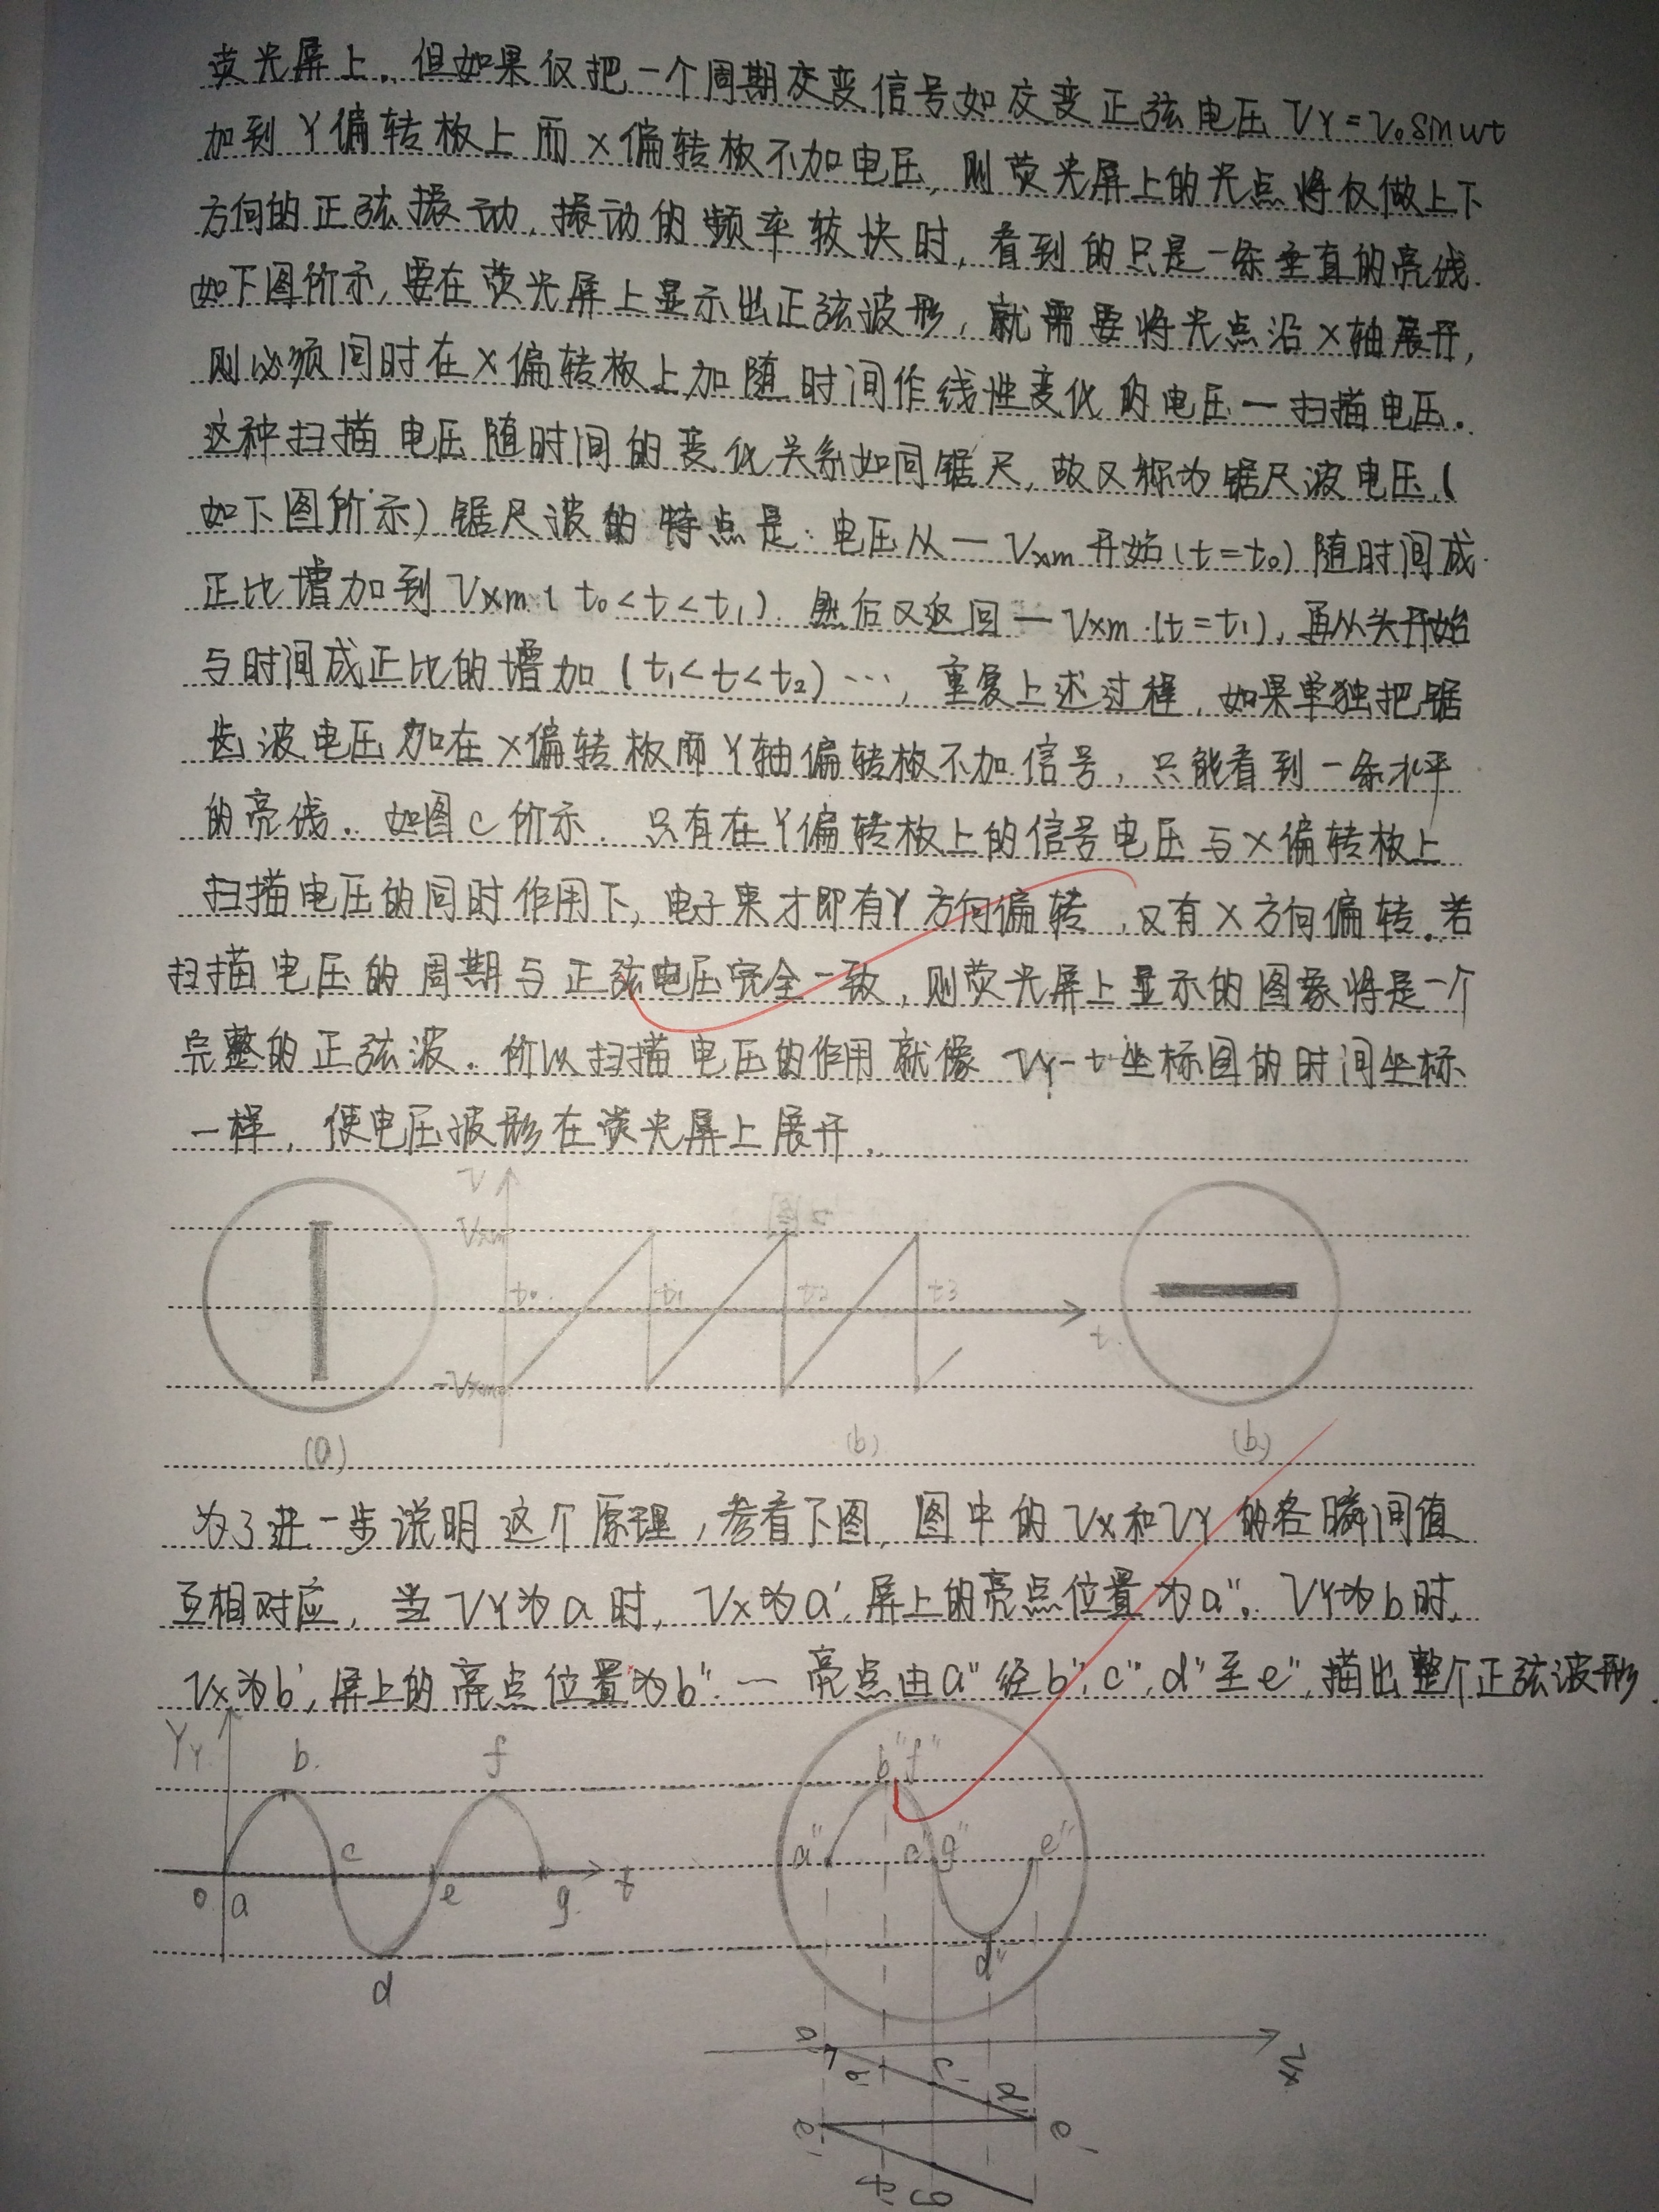 荧光屏上. 但如果仅把一个周期交变信号如交变正弦电压VY=V₀sinωt
加到Y偏转板上而X偏转板不加电压, 则荧光屏上的光点将仅做上下
方向的正弦振动, 振动的频率较快时, 看到的只是一条垂直的亮线.
如下图所示, 要在荧光屏上显示出正弦波形, 就需要将光点沿X轴展开,
则必须同时在X偏转板上加随时间作线性变化的电压一扫描电压.
这种扫描电压随时间的变化关系如同锯尺, 故又称为锯尺波电压(
如下图所示)锯尺波的特点是: 电压从-Vxm开始(t=t₀)随时间成
正比增加到Vxm(t₀<t<t₁). 然后又返回-Vxm(t=t₁), 再从头开始
与时间成正比的增加(t₁<t<t₂)…, 重复上述过程, 如果单独把锯
齿波电压加在X偏转板而Y轴偏转板不加信号, 只能看到一条水平
的亮线. 如图c所示. 只有在Y偏转板上的信号电压与X偏转板上
扫描电压的同时作用下, 电子束才即有Y方向偏转, 又有X方向偏转. 若
扫描电压的周期与正弦电压完全一致, 则荧光屏上显示的图象将是一个
完整的正弦波. 所以扫描电压的作用就像Vy-t坐标图的时间坐标
一样, 使电压波形在荧光屏上展开.
V
Vxm
t₀ t₁ t₂ t3
t
-Vxm
(a) (b) (b)
为了进一步说明这个原理, 参看下图, 图中的Vx和VY的各瞬间值
互相对应, 当VY为a时, Vx为a', 屏上的亮点位置为a". VY为b时,
Vx为b', 屏上的亮点位置为b". … 亮点由a"经b", c", d"至e", 描出整个正弦波形.
YY b f b" f"
c a" c" g" e"
o a e g t
d d"
a' b' c' d' Vx
e' e'
f' g'